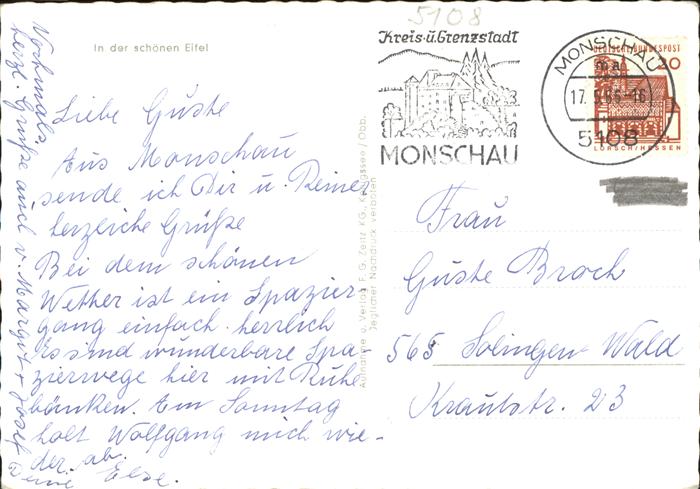 In der schönen Eifel
Liebe Guste
Aus Monschau
sende ich Dir u. Reiner
herzliche Grüße
Bei dem schönen
Wetter ist ein Spazier
gang einfach herrlich
Es sind wunderbare Spa
zierwege hier mit Ruhe
bänken. Am Sonntag
holt Wolfgang mich wie-
der ab.
Deine Else.
Nochmals
herzl. Grüße auch v. Margot + Josef
Aufnahme u. Verlag F. G. Zeitz KG., Königssee / Obb.
Jeglicher Nachdruck verboten
5108
Kreis- u. Grenzstadt
MONSCHAU
MONSCHAU
ma
17. 9.65-16
5108
DEUTSCHE BUNDESPOST
20
LORSCH/HESSEN
Frau
Guste Broch
565 Solingen Wald
Krautstr. 23